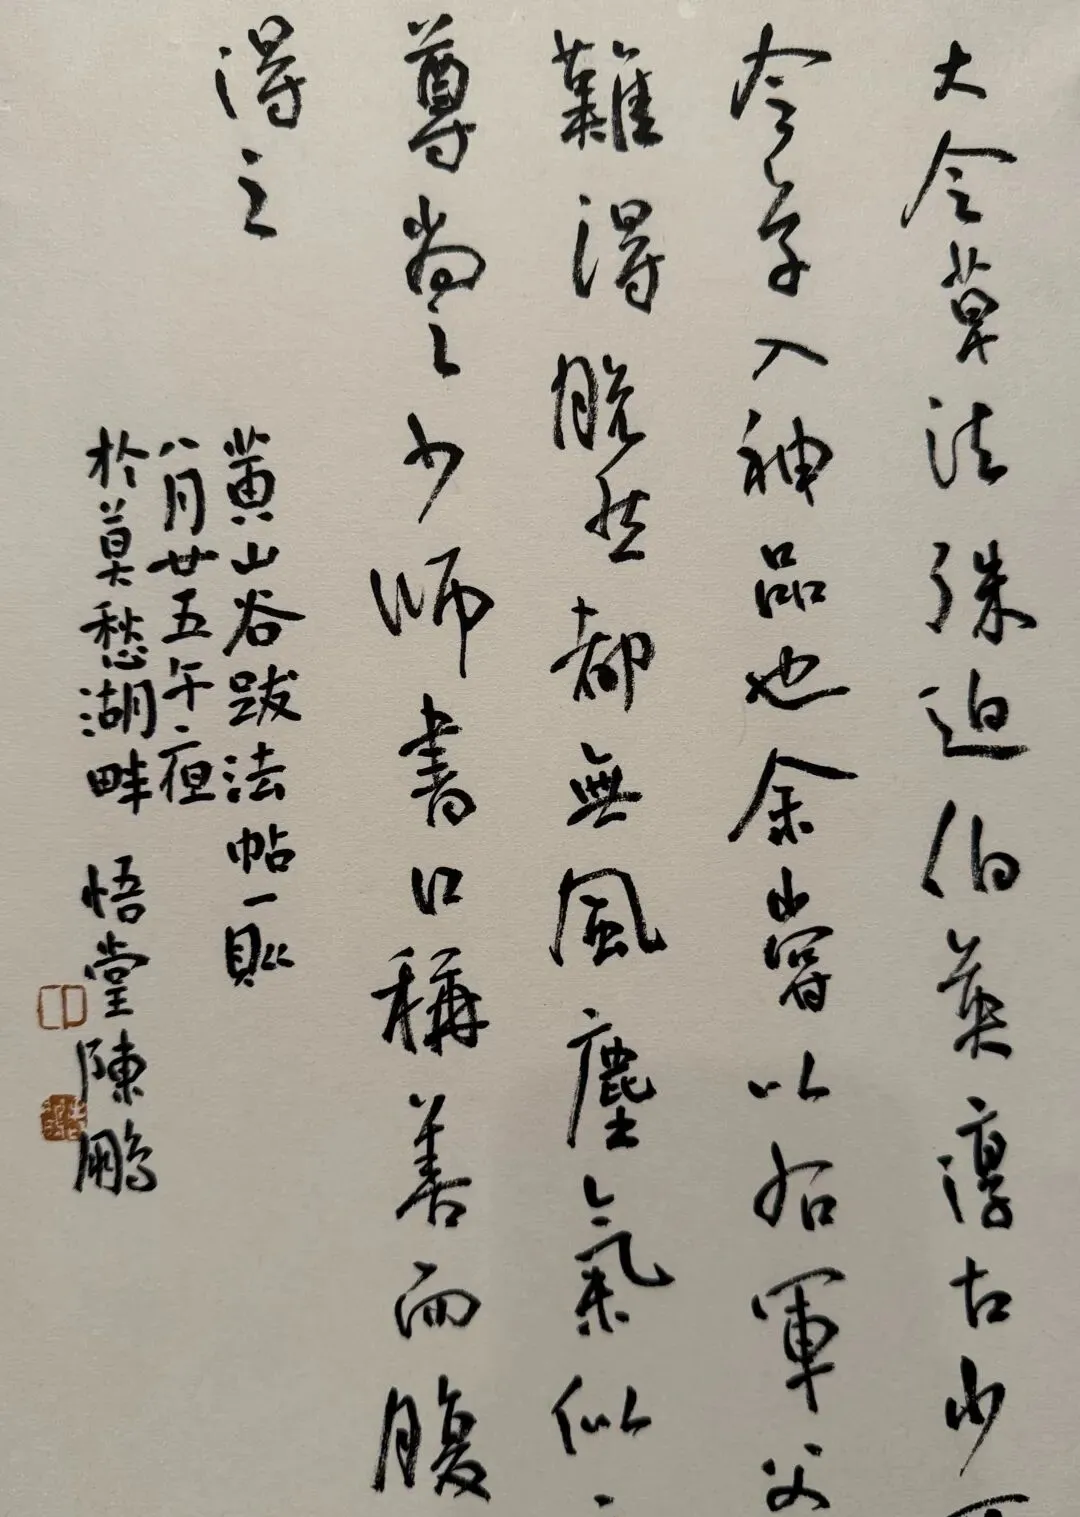 大令草法殊迫伯英淳古少
令草入神品也余嘗以右軍父
難得脫然都無風塵氣似
尊尚之少師書口稱善而腹
得之
黄山谷跋法帖一則
八月廿五午夜
於莫愁湖畔 悟堂陳鵬